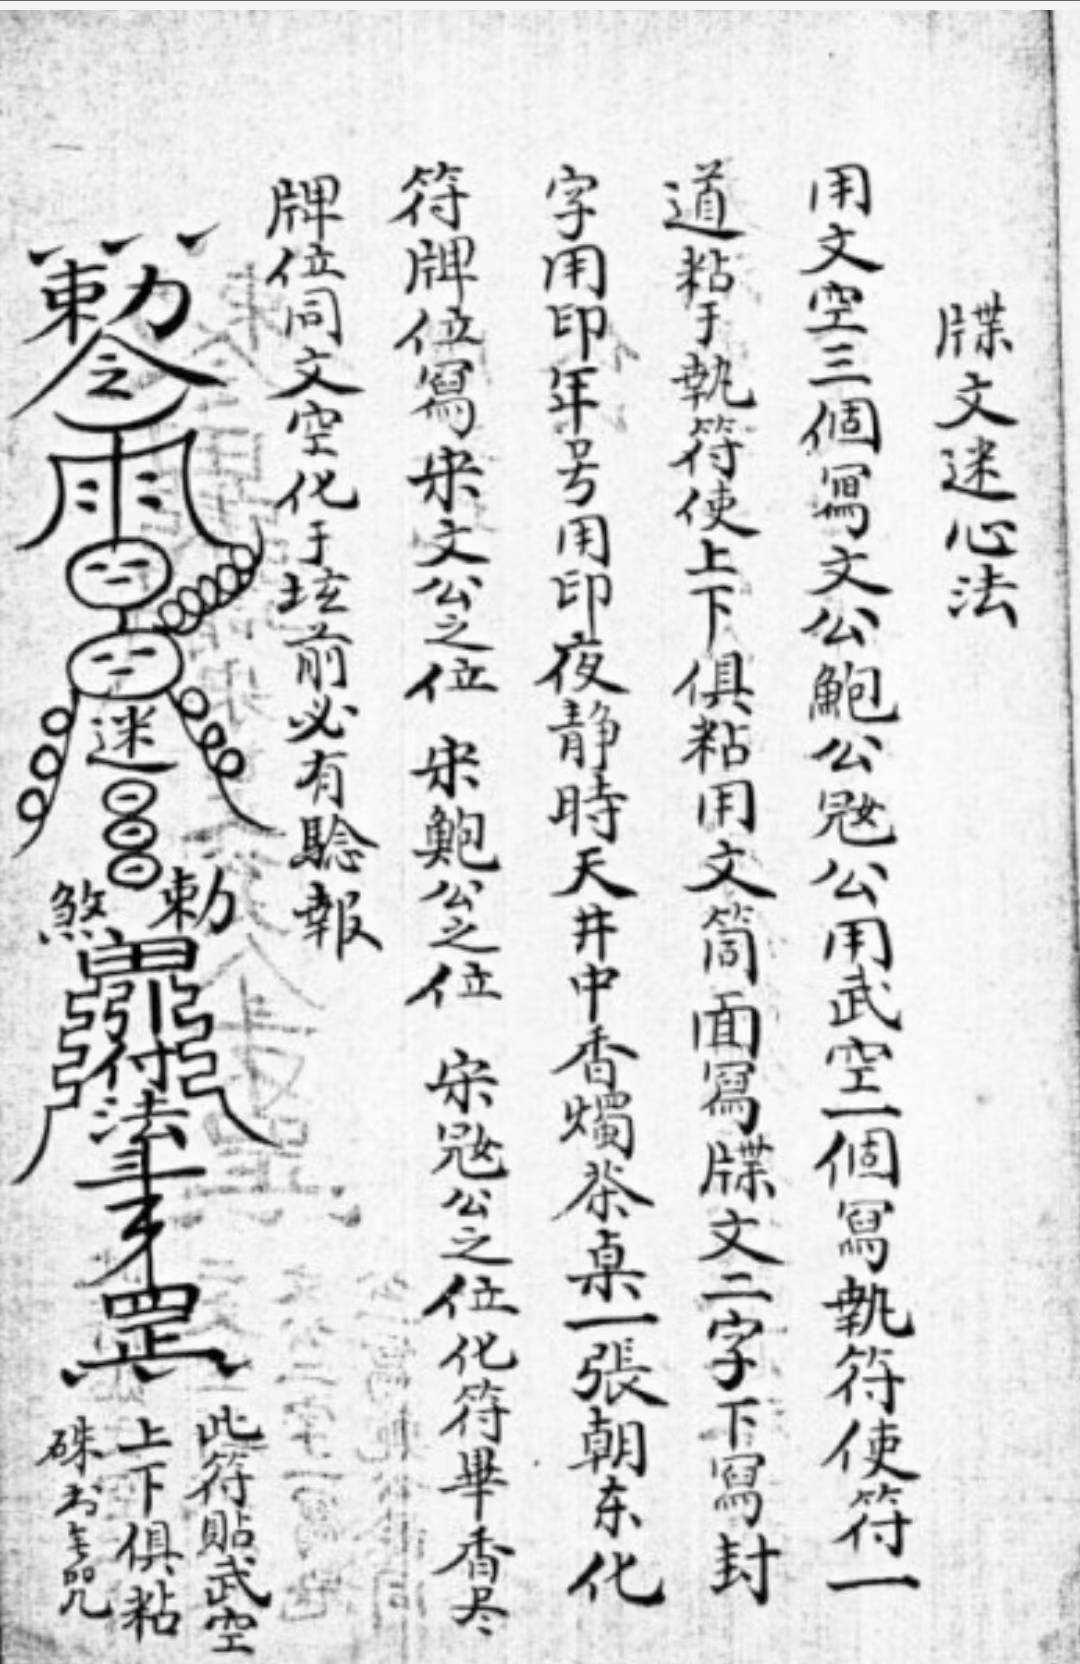 牒文迷心法
用文空三個寫文公鮑公兜公用武空一個寫執符使符一
道粘于執符使上下俱粘用文筒面寫牒文二字下寫封
字用印年号用印夜静時天井中香燭茶桌一張朝东化
符牌位寫宋文公之位 宋鮑公之位 宋兜公之位化符畢香尽
牌位同文空化于坟前必有驗報
勅令
雨
迷
煞 勅
法
罡
此符貼武空
上下俱粘
硃书